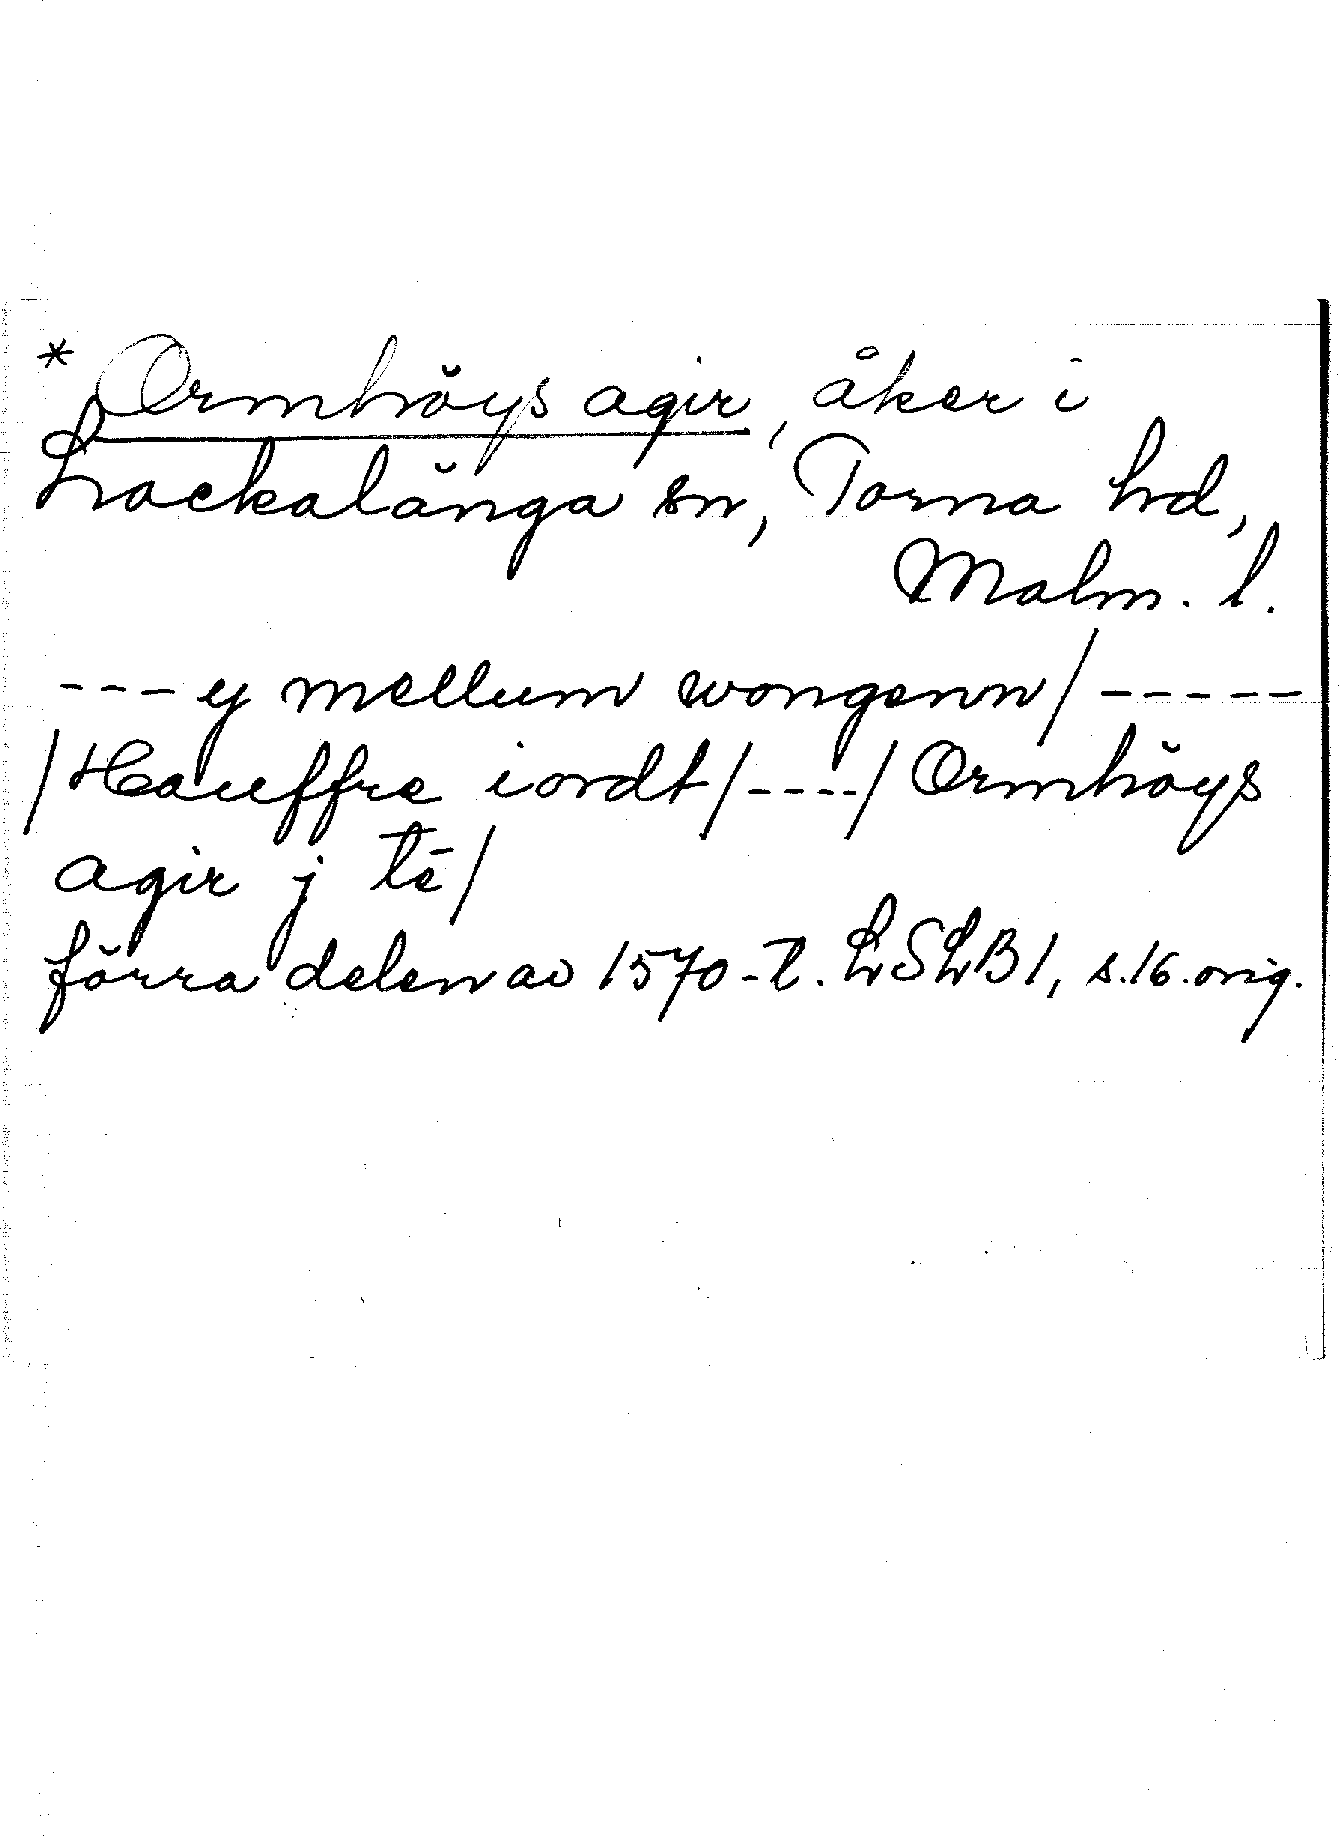 * Ormhöys agir, åker i
Lackalänga sn, Torna hd,
Malm. l.
--- ij mellum wongenn/ -----
/Hauffre iordt/----/ Ormhöys
agir j tē/
förra delen av 1570-t. LSLB1, s.16.orig.